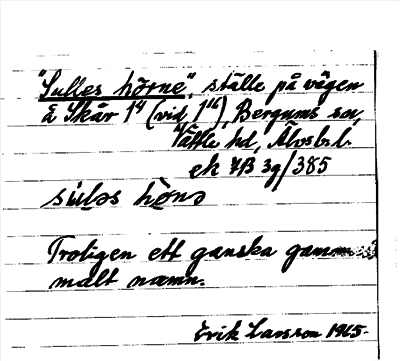 "Sulles hörne", ställe på vägen
å Skår 1⁴ (vid 1¹⁶), Bergums sn,
Vättle hd, Älvsb.l.
ek 7B 3g/385
Troligen ett ganska gamm
malt namn.
Erik Larsson 1965.